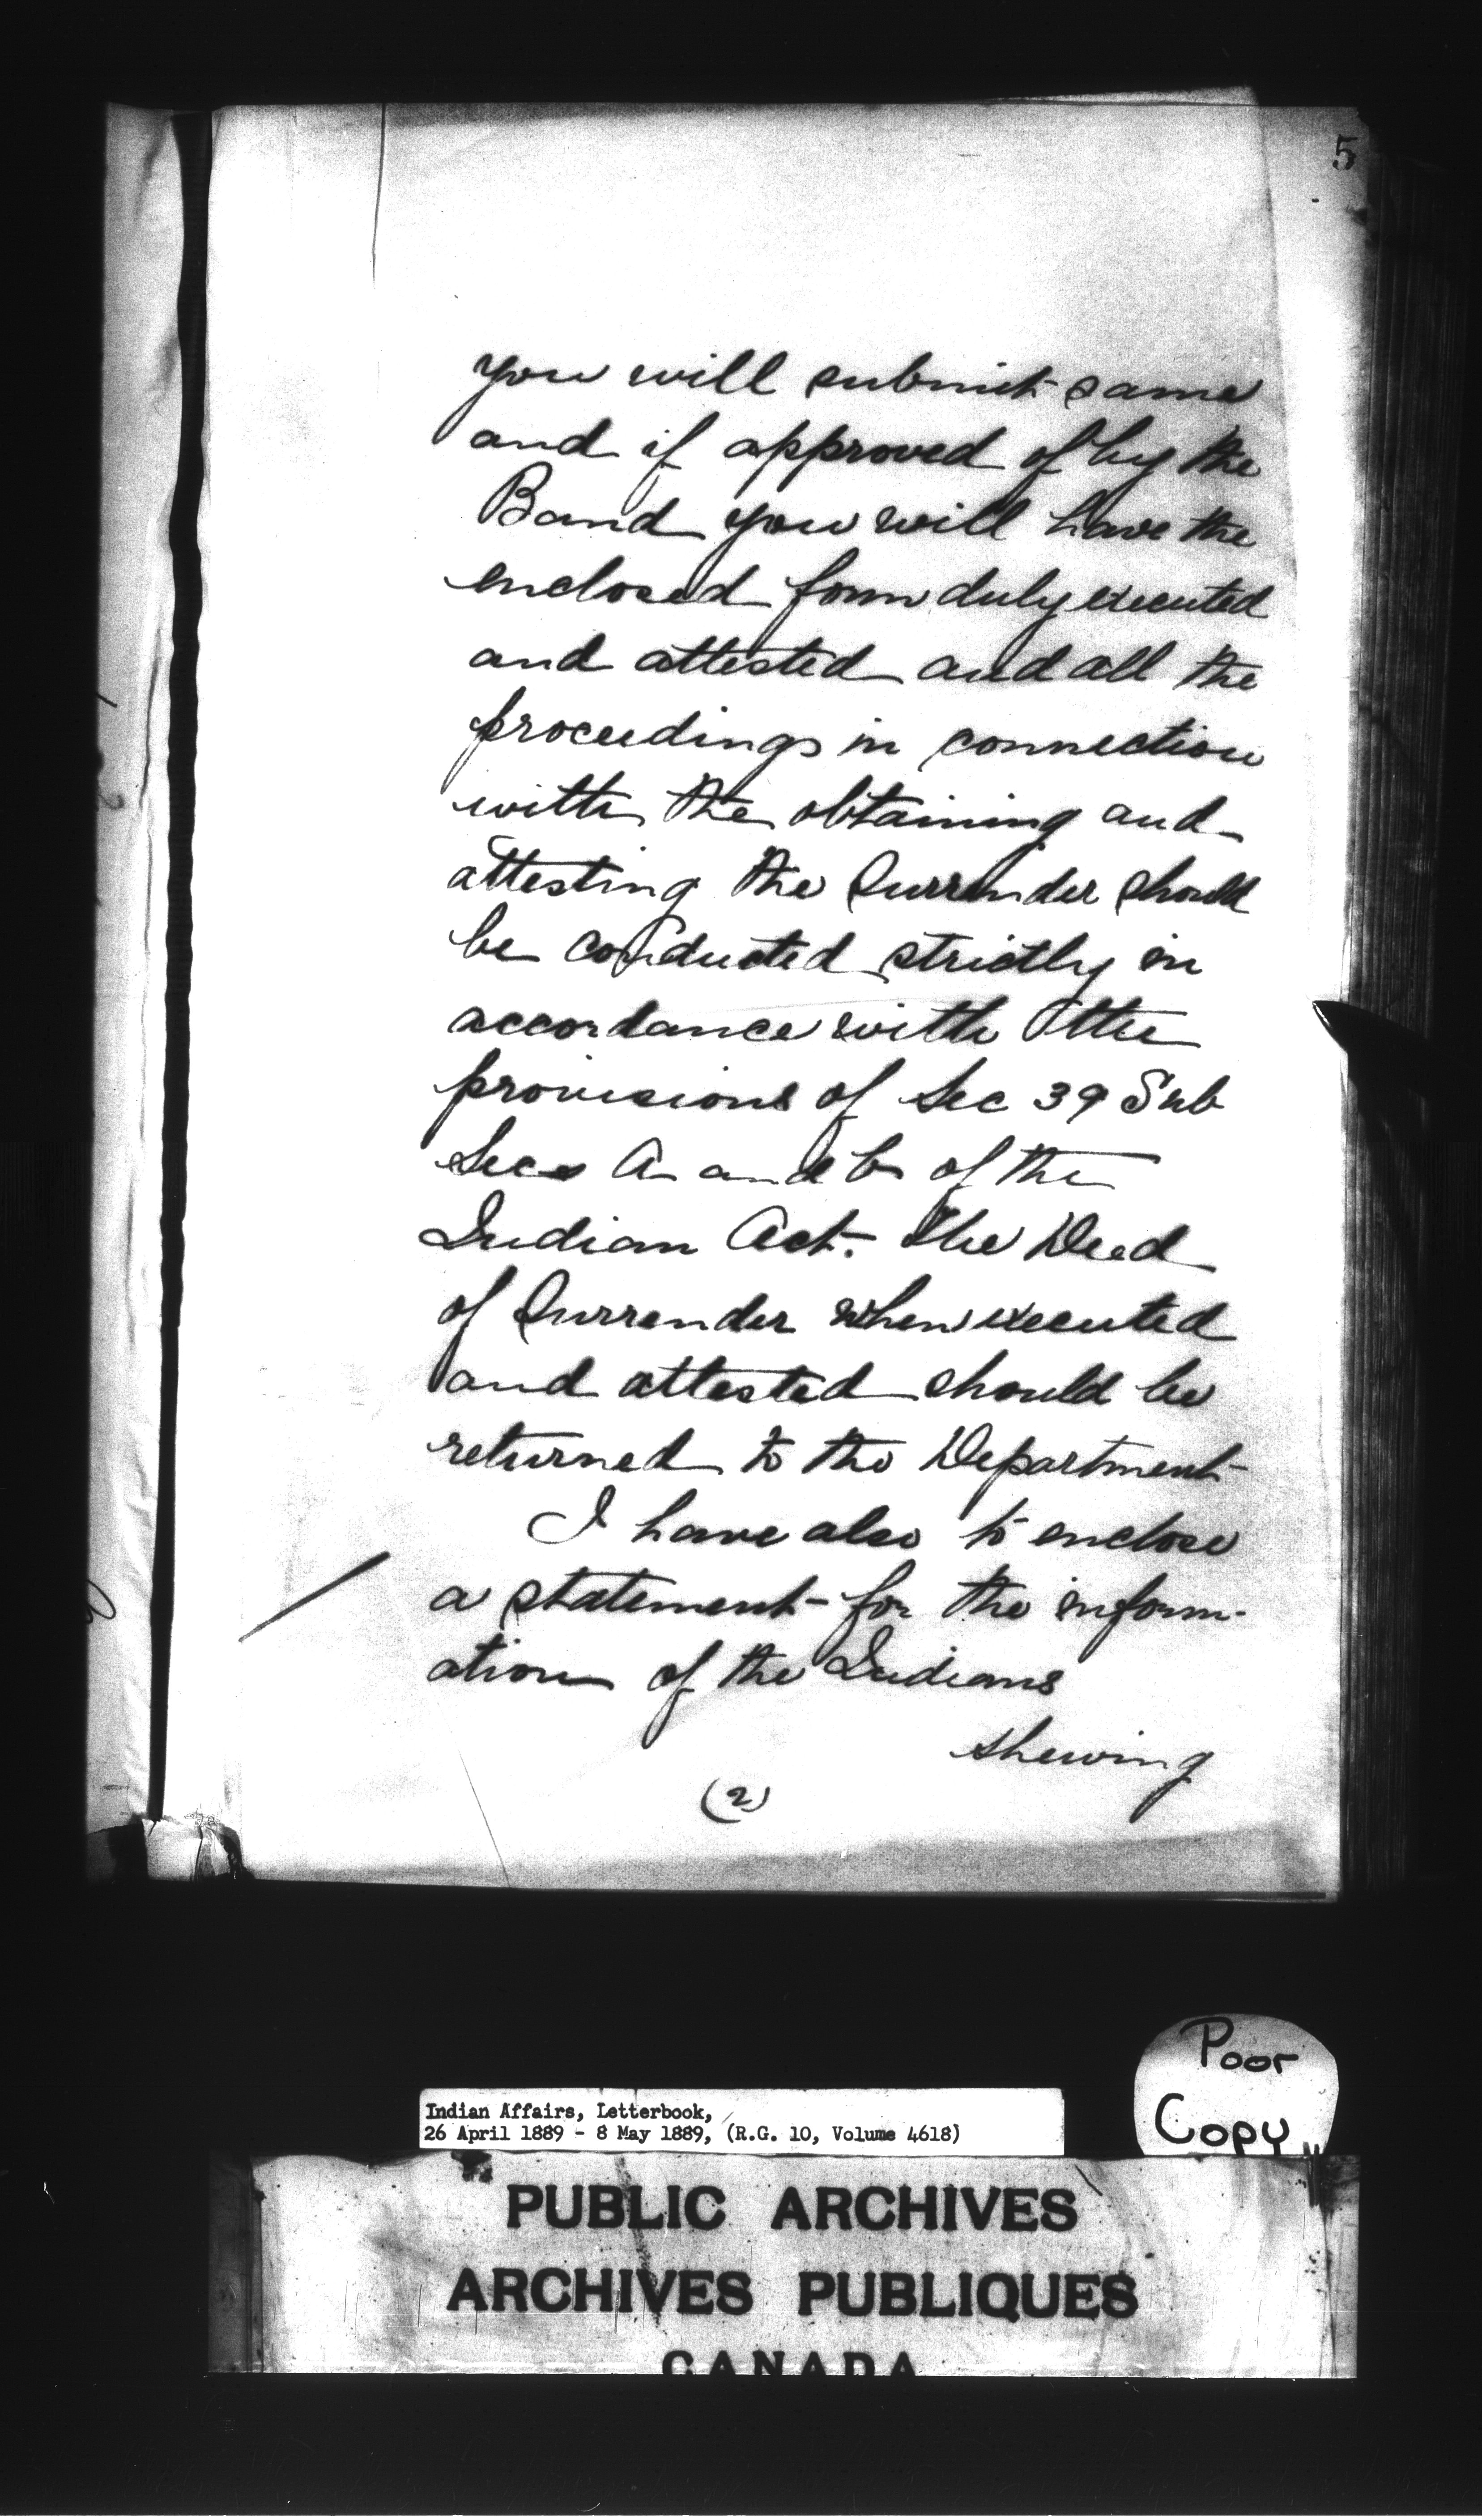 5
you will submit same
and if approved of by the
Band you will have the
enclosed form duly executed
and attested and all the
proceedings in connection
with the obtaining and
attesting the Surrender should
be conducted strictly in
accordance with the
provisions of Sec 39 Sub
Secs A and b of the
Indian Act. The Deed
of Surrender when executed
and attested should be
returned to the Department
I have also to enclose
a statement for the inform-
ation of the Indians
shewing
(2)
Poor
Copy
Indian Affairs, Letterbook,
26 April 1889 - 8 May 1889, (R.G. 10, Volume 4618)
PUBLIC ARCHIVES
ARCHIVES PUBLIQUES
CANADA